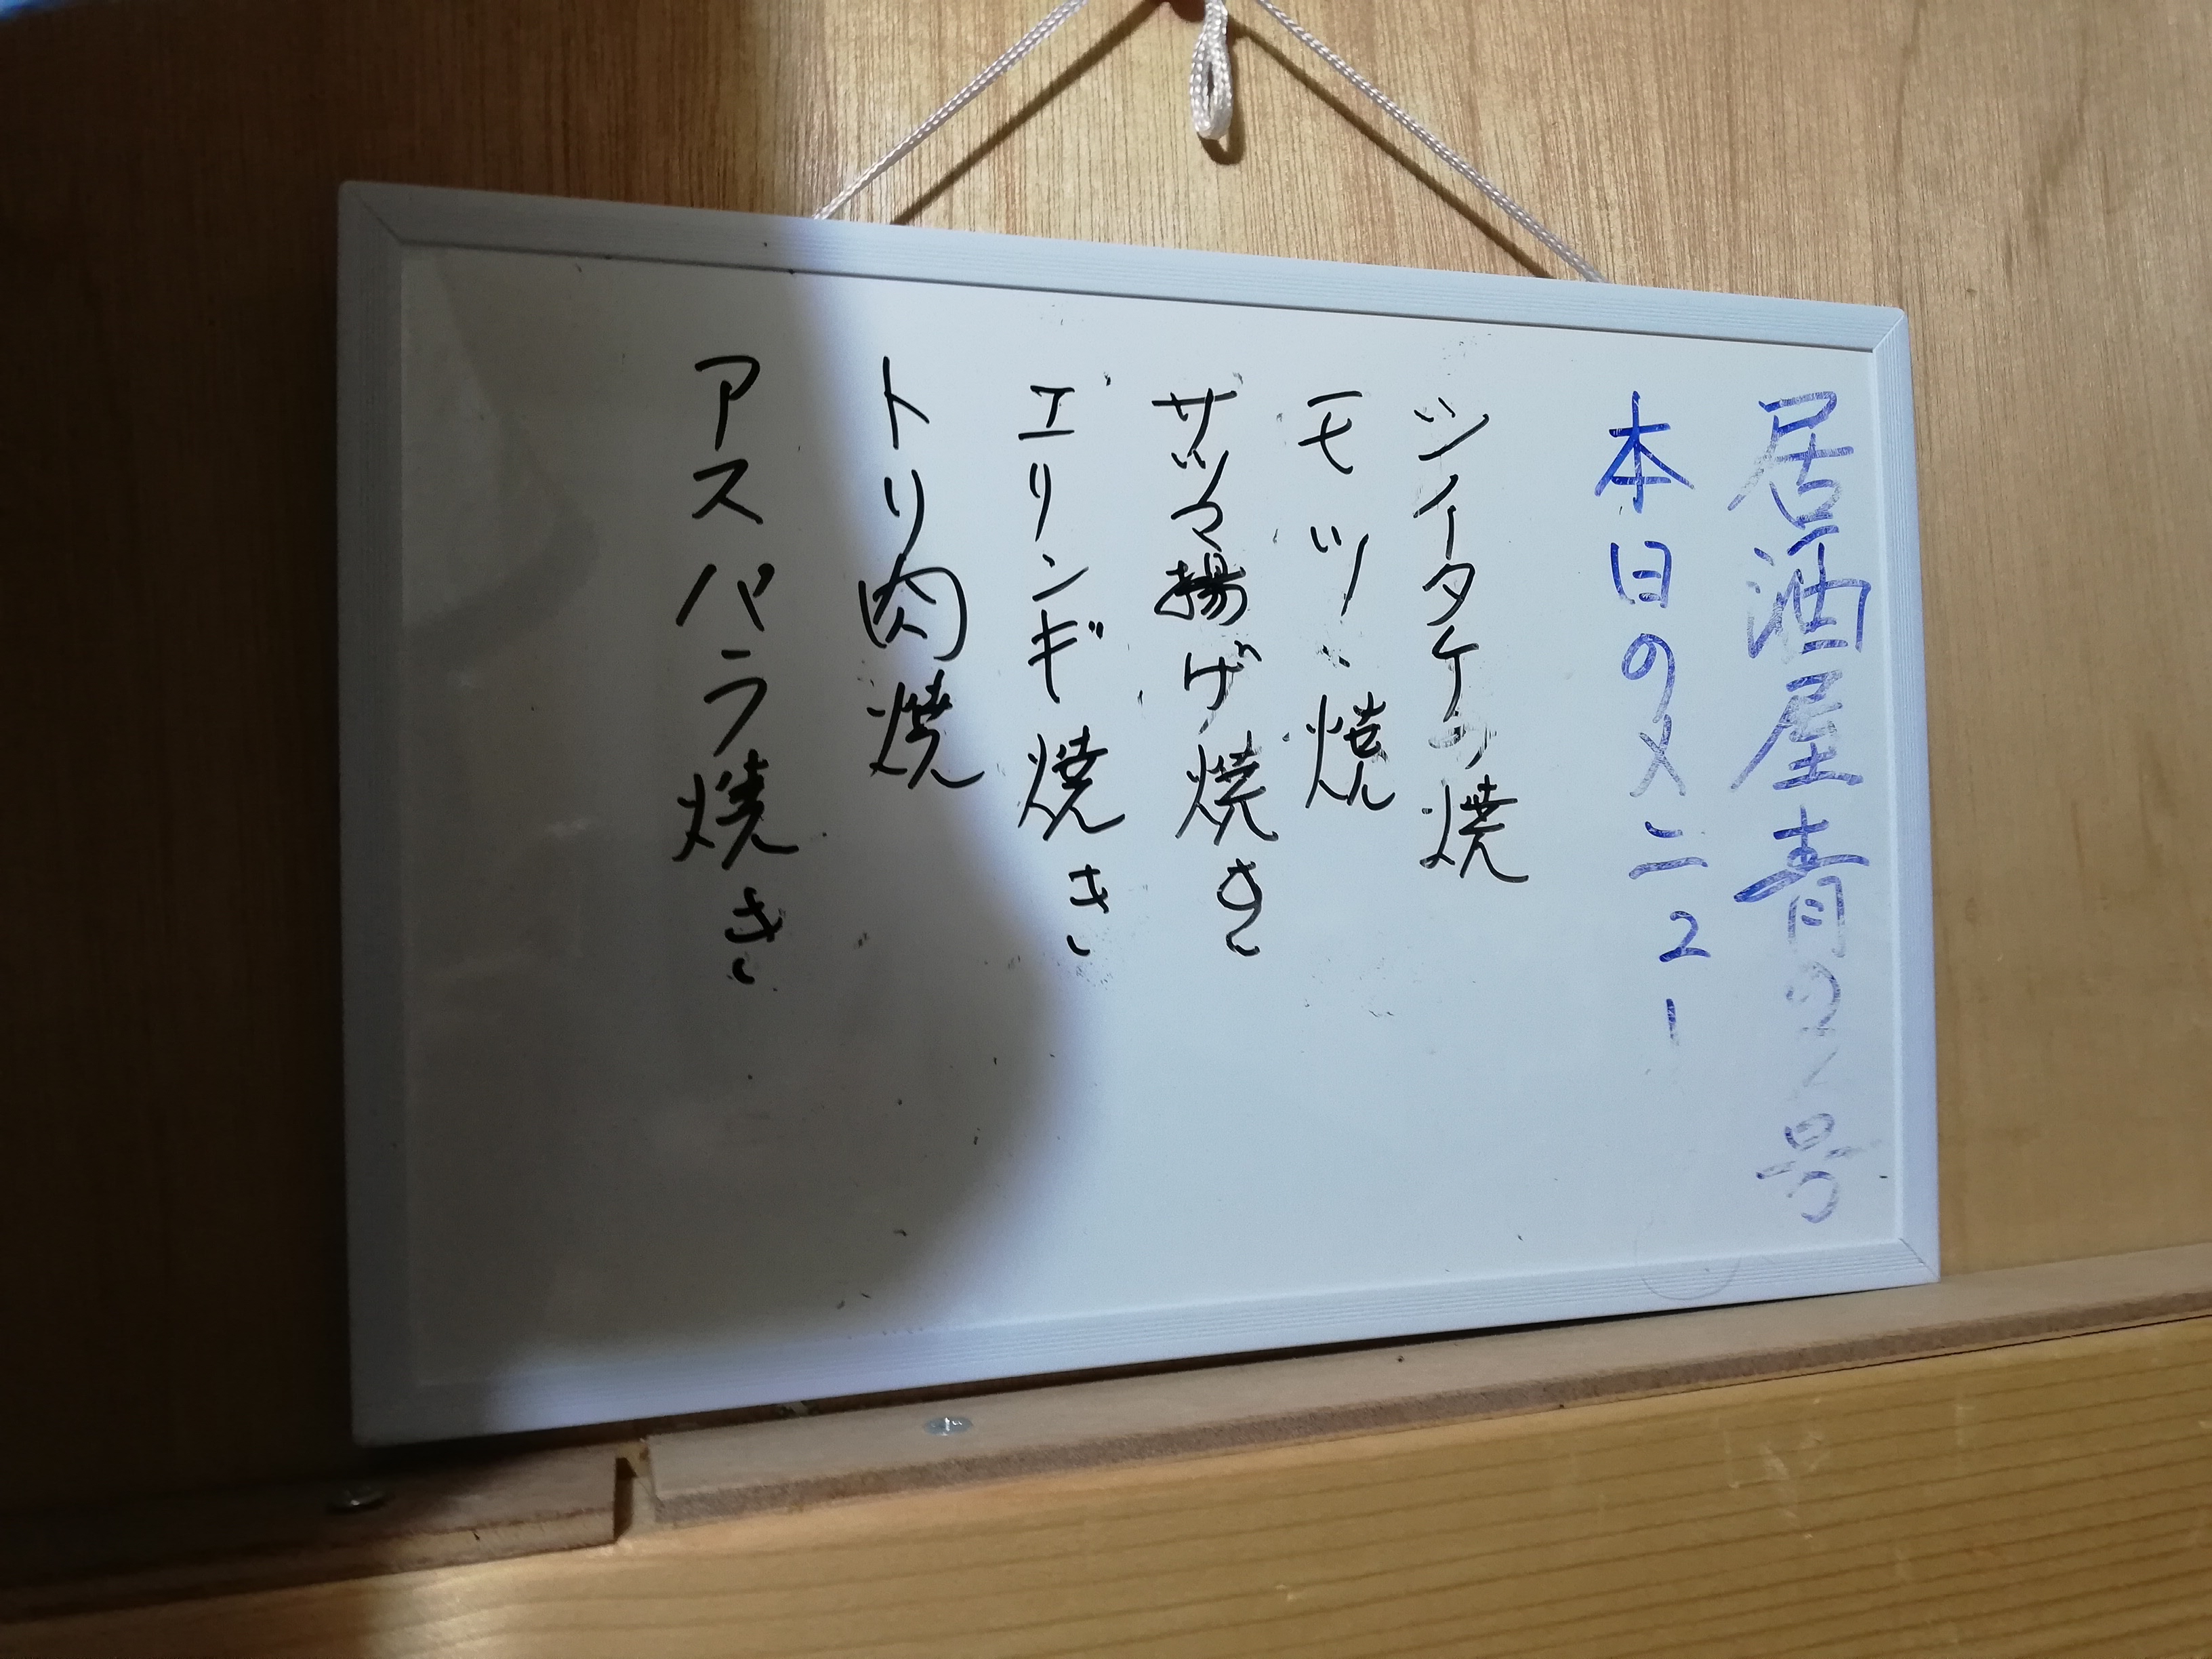 居酒屋青の2号
本日のメニュー
シイタケ焼
モツ焼
サツマ揚げ焼き
エリンギ焼き
トリ肉焼
アスパラ焼き